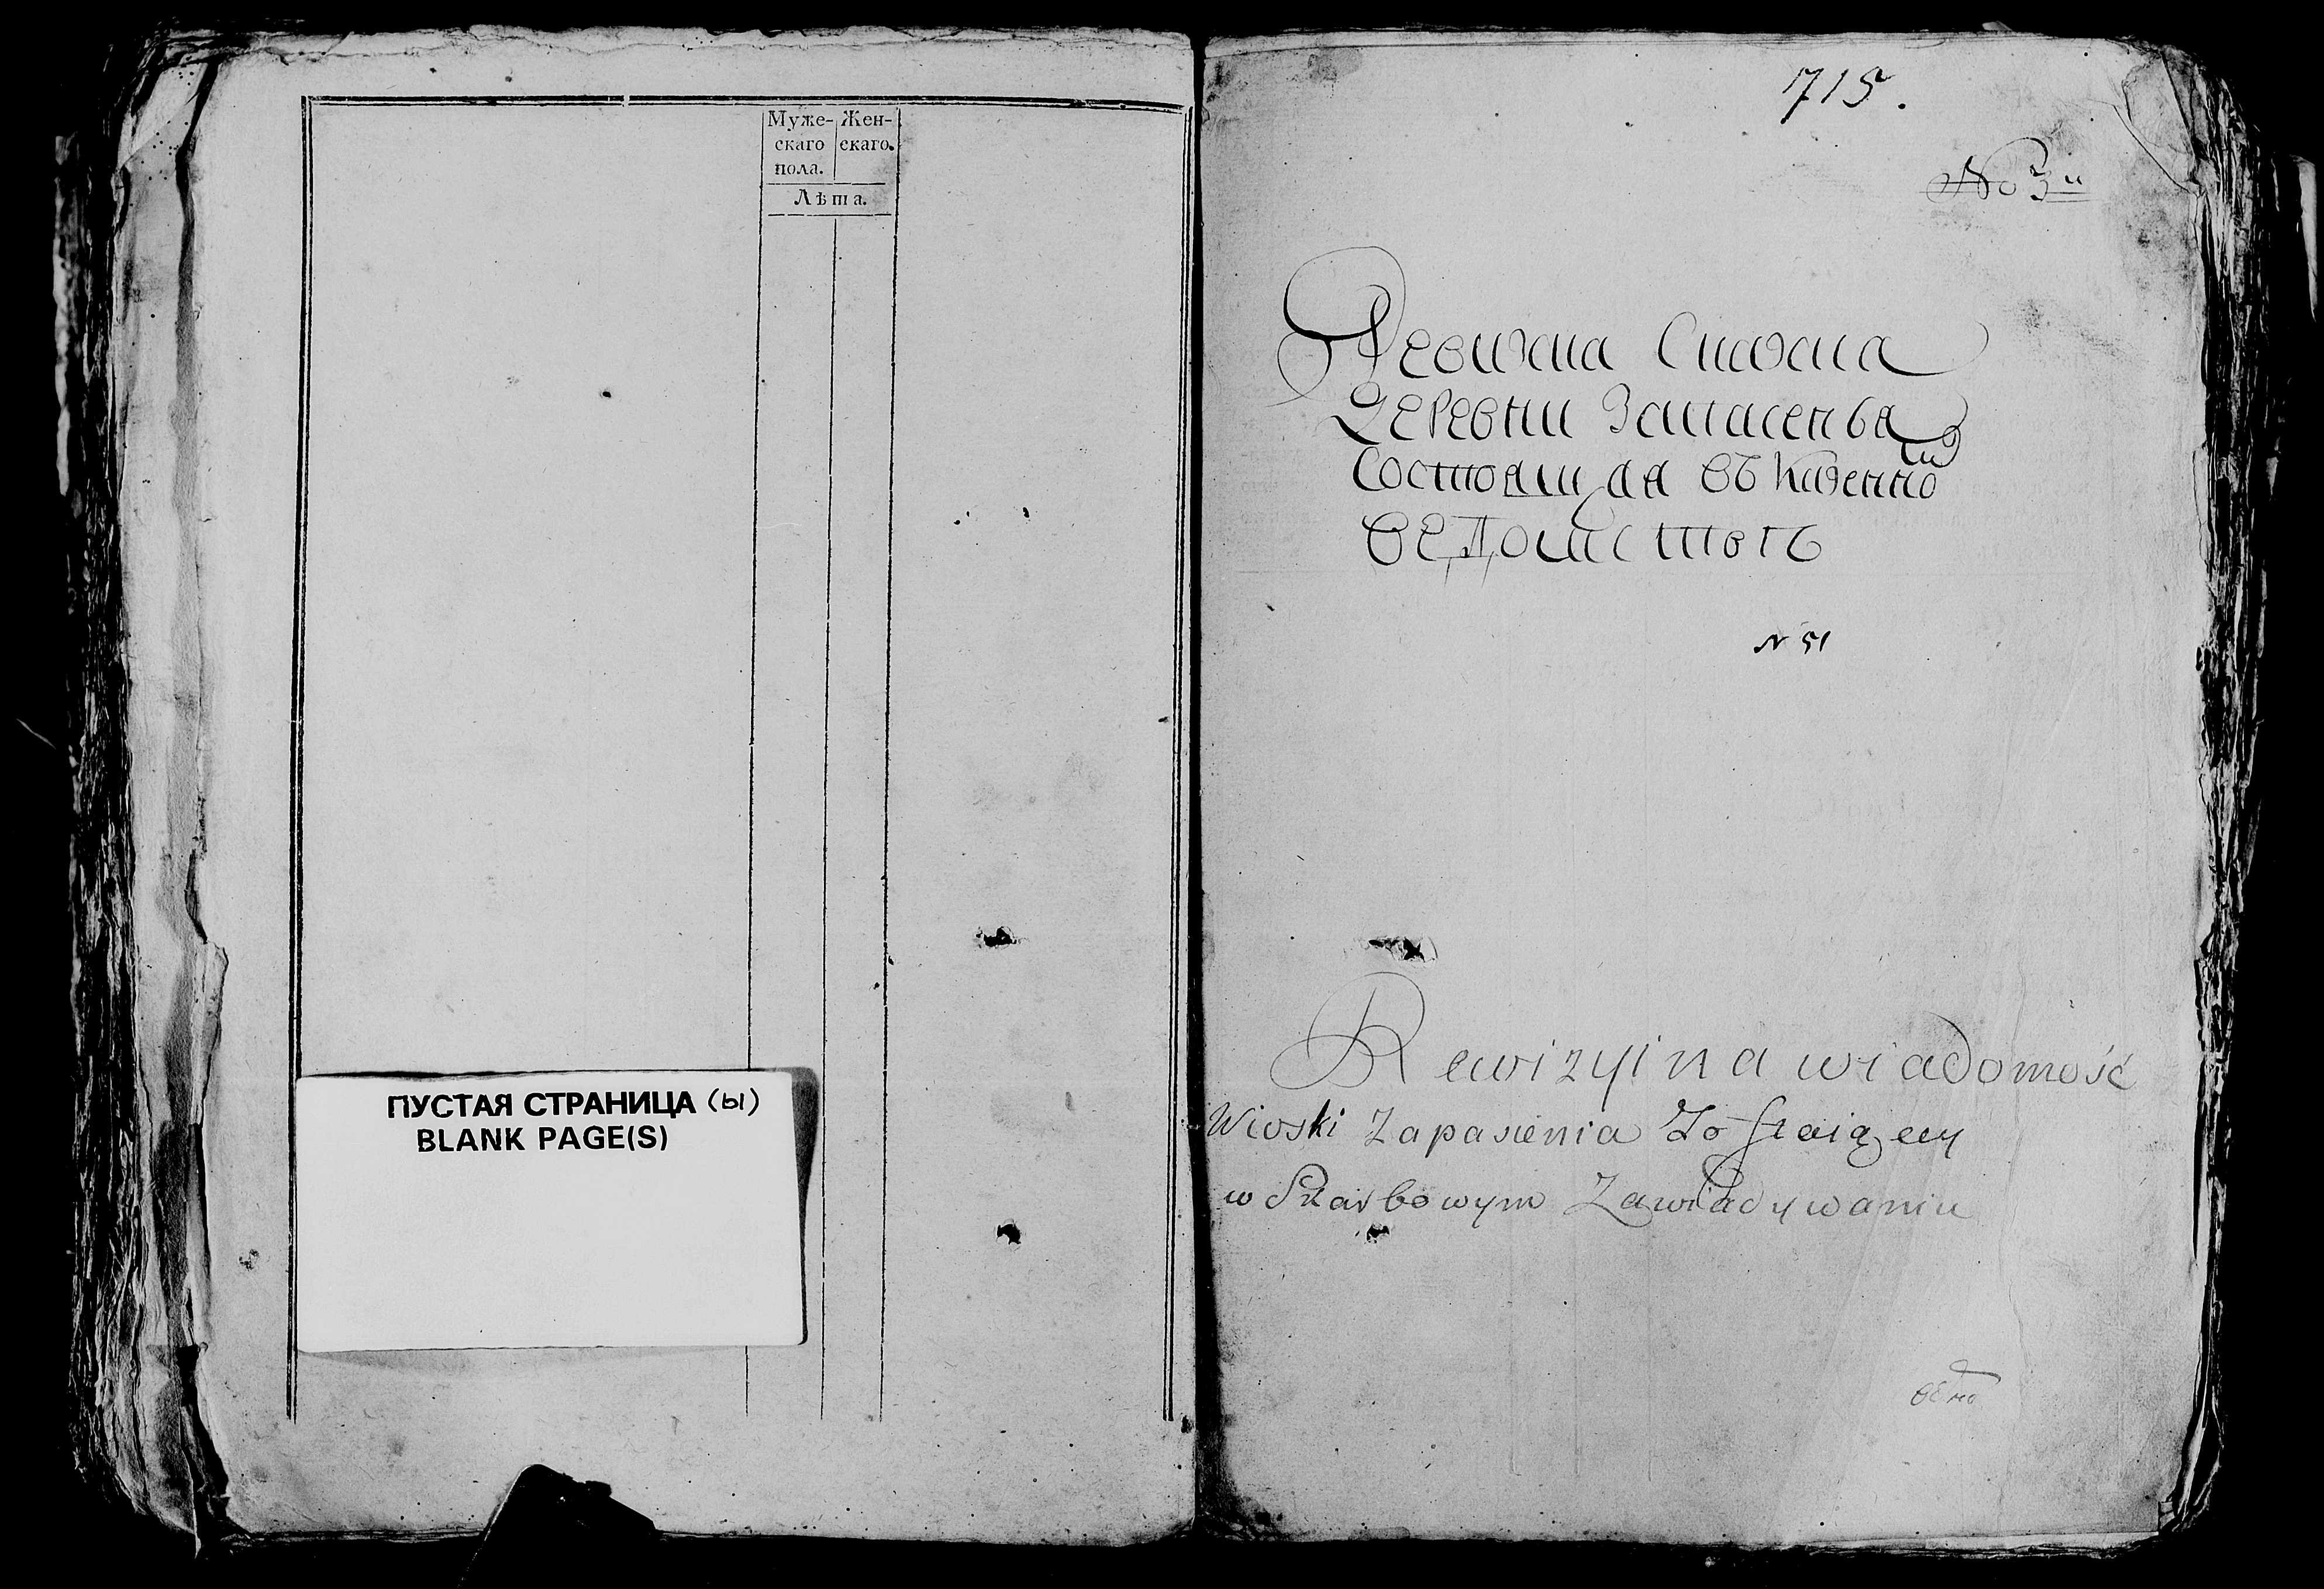 Муже-
скаго
пола.
Жен-
скаго.
Лѣта.
ПУСТАЯ СТРАНИЦА (ы)
BLANK PAGE(S)
715.
No 3
Ревижна Скаска
Деревни Запасенья
Состояща я въ Казенной
ведомствъ
N 51
Rewizyina wiadomość
Wioski Zapasienia
w Skarbowym Zawiadywaniu